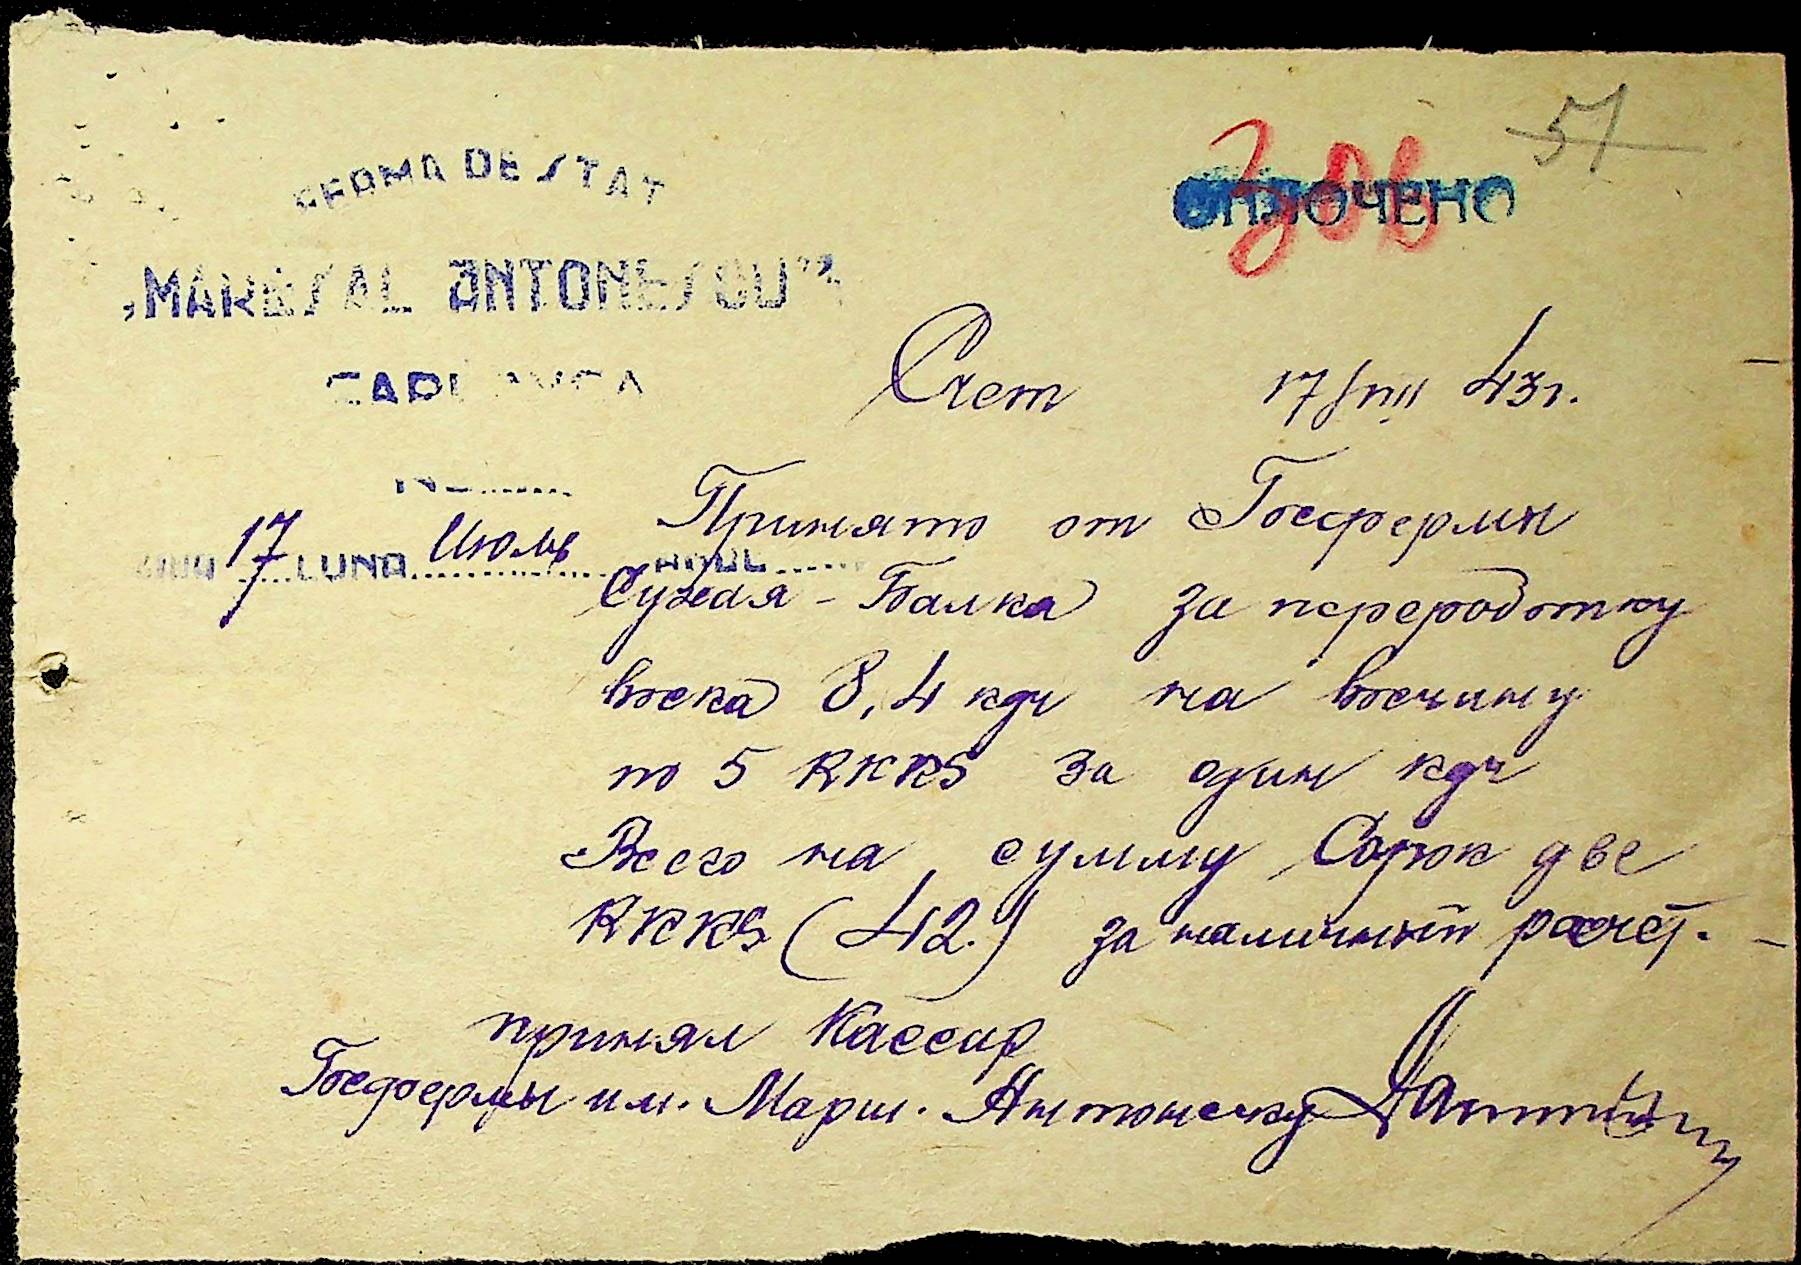 FERMA DE STAT
57
ОПЛОЧЕНО
„MAREȘAL ANTONESCU”
Счет 17/VII 43 г.
No.........
ZIUA 17 LUNA Июль ANUL
Принято от Госфермы
Сухая - Балка за переработку
воска 8,4 кгр на вощину
по 5 RKKS за один кгр
Всего на сумму Сорок две
RKKS (42.) за наличный расчёт.
принял Кассир
Госфермы им. Марш. Антонеску